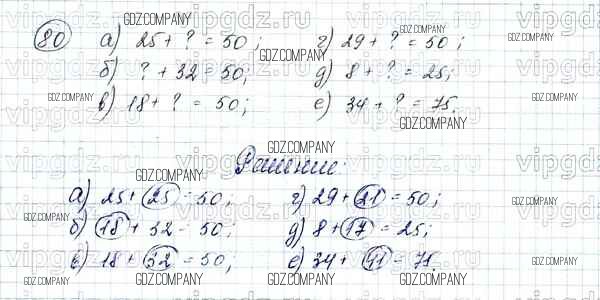 80 а) 25 + ? = 50; г) 29 + ? = 50;
б) ? + 32 = 50; д) 8 + ? = 25;
в) 18 + ? = 50; е) 34 + ? = 75.
Решение:
а) 25 + 25 = 50; г) 29 + 21 = 50;
б) 18 + 32 = 50; д) 8 + 17 = 25;
в) 18 + 32 = 50; е) 34 + 41 = 75.
GDZ.COMPANY
vipgdz.ru